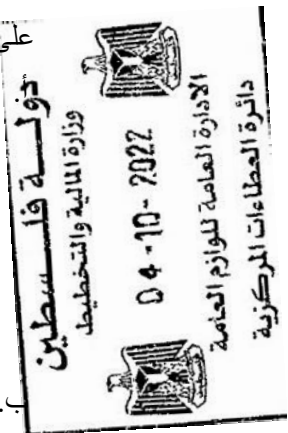 على
دولة فلسطين
وزارة المالية والتخطيط
04-10-2022
الادارة العامة للوازم العامة
دائرة العطاءات المركزية
ب.